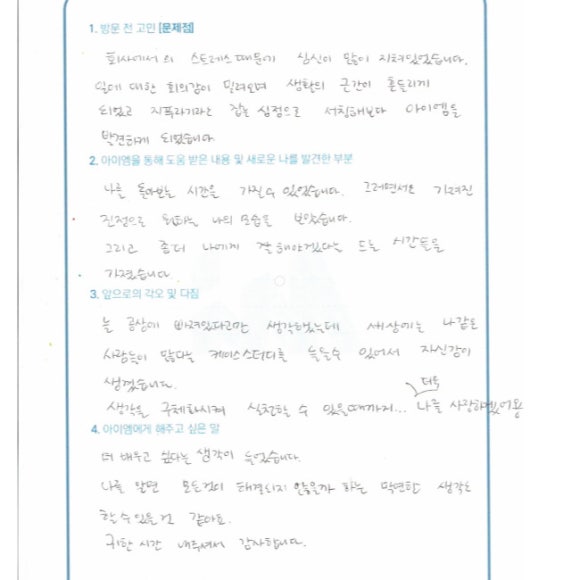 1. 방문 전 고민 [문제점]
회사에서의 스트레스 때문에 심신이 많이 지쳐있었습니다.
일에 대한 회의감이 밀려오며 생활의 근간이 흔들리게
되었고 지푸라기라도 잡는 심정으로 서칭해보다 아이엠을
발견하게 되었습니다
2. 아이엠을 통해 도움 받은 내용 및 새로운 나를 발견한 부분
나를 돌아보는 시간을 가질 수 있었습니다. 그러면서
진정으로 나의 모습을 보았습니다.
그리고 좀더 나에게 잘해야겠다는 드는 시간들을
가졌습니다.
3. 앞으로의 각오 및 다짐
늘 공상에 빠져있다고만 생각했는데 세상에는 나같은
사람들이 많다는 케이스스터디를 들을 수 있어서 자신감이
생겼습니다.
더욱
생각을 구체화시켜 실천할 수 있을때까지... 나를 사랑하겠어용
4. 아이엠에게 해주고 싶은 말
더 배우고 싶다는 생각이 들었습니다.
나를 알면 모든것이 해결되지 않을까 하는 막연한 생각도
할 수 있을 것 같아요.
귀한 시간 내주셔서 감사합니다.